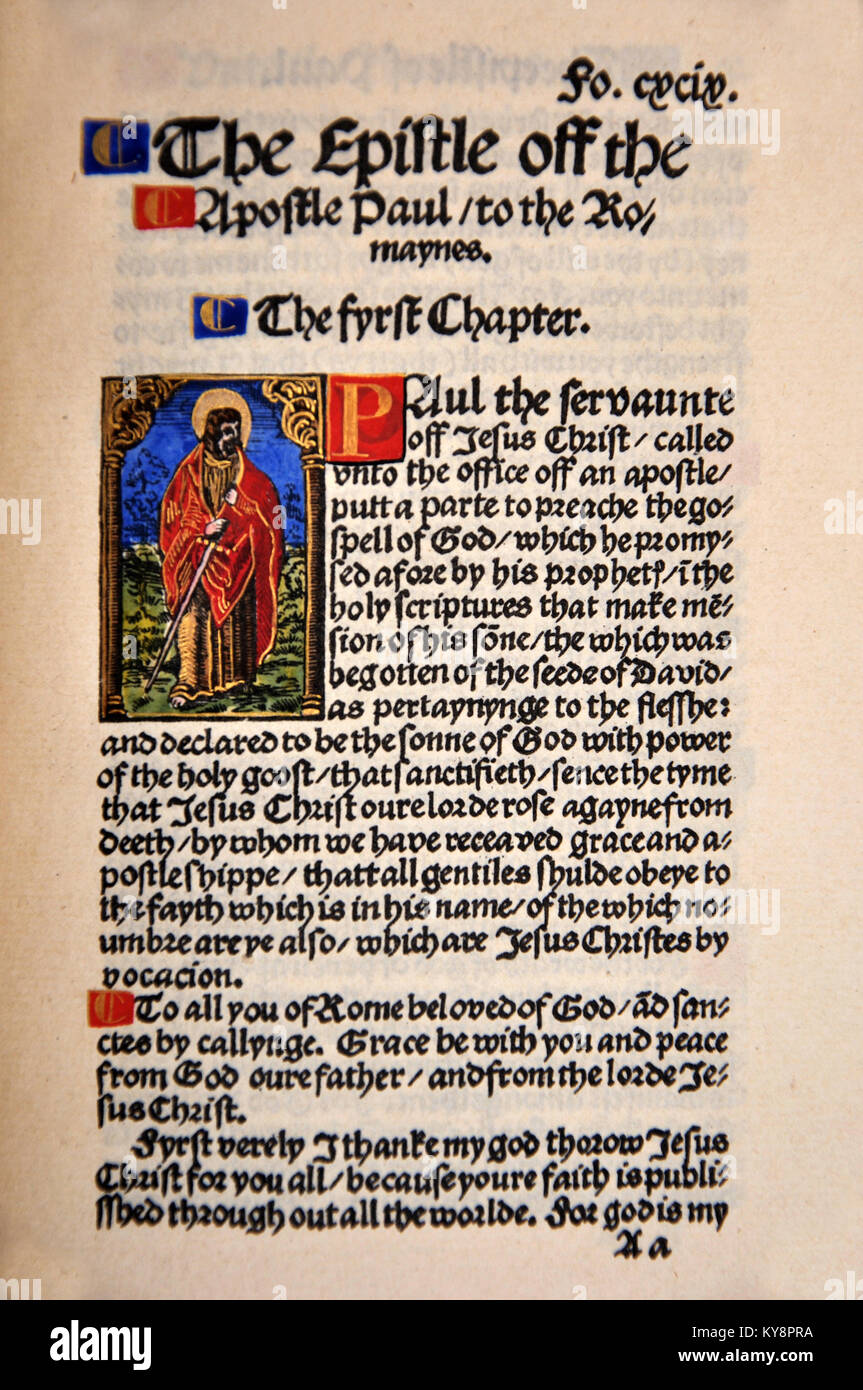 Fo. cxcix.
The Epistle off the
Apostle Paul/to the Ro⸗
maynes.
The fyrst Chapter.
PAul the servaunte
off Jesus Christ/ called
vnto the office off an apostle/
putt a parte to preache the go⸗
spell of God/ which he promy⸗
sed afore by his prophetꝭ/ ī the
holy scriptures that make mē⸗
sion of his sōne/ the which was
begotten of the seede of David/
as pertaynynge to the flesshe:
and declared to be the sonne of God with power
of the holy goost/ that sanctifieth/ sence the tyme
that Jesus Christ oure lorde rose agayne from
deeth/ by whom we have receaved grace and a⸗
postleshippe/ thatt all gentiles shulde obeye to
the fayth which is in his name/ of the which no⸗
umbre are ye also/ which are Jesus Christes by
vocacion.
To all you of Rome beloved of God/ ād san⸗
ctes by callynge. Grace be with you and peace
from God oure father/ and from the lorde Je⸗
sus Christ.
Fyrst verely I thanke my god thorow Jesus
Christ for you all/ because youre faith is publi⸗
sshed through out all the worlde. For god is my
A a
alamy
Image ID: KY8PRA
www.alamy.com